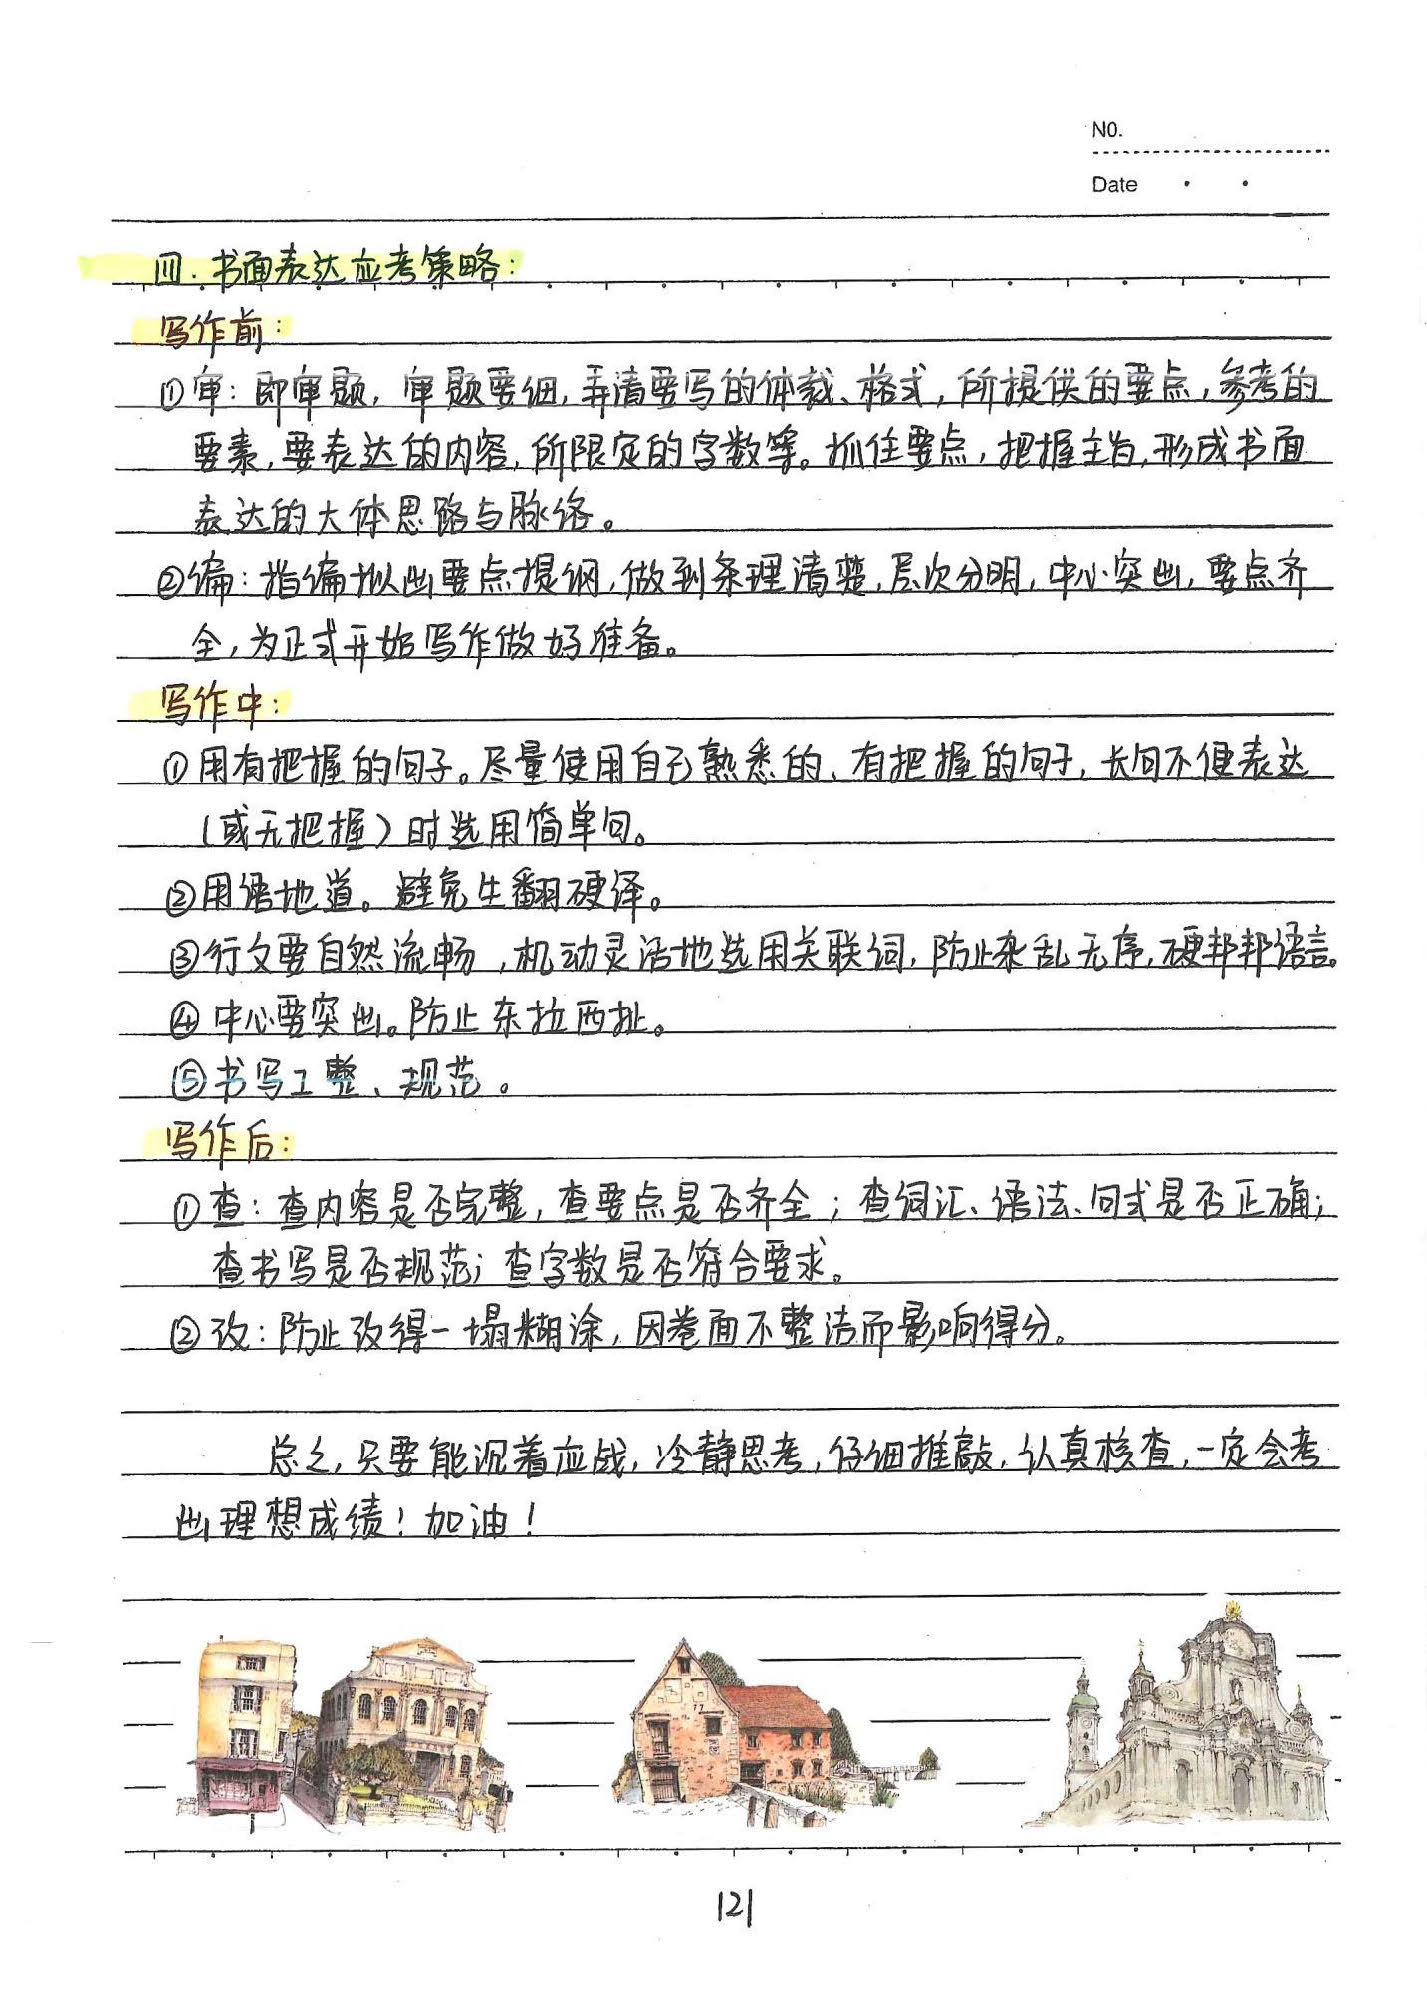 NO.
Date
四.书面表达应考策略:
写作前:
①审:即审题,审题要细,弄清要写的体裁、格式,所提供的要点,参考的
要素,要表达的内容,所限定的字数等。抓住要点,把握主旨,形成书面
表达的大体思路与脉络。
②编:指编拟出要点提纲,做到条理清楚,层次分明,中心突出,要点齐
全,为正式开始写作做好准备。
写作中:
①用有把握的句子。尽量使用自己熟悉的、有把握的句子,长句不便表达
(或无把握)时选用简单句。
②用语地道。避免生翻硬译。
③行文要自然流畅,机动灵活地选用关联词,防止杂乱无序,硬邦邦语言。
④中心要突出。防止东拉西扯。
⑤书写工整、规范。
写作后:
①查:查内容是否完整,查要点是否齐全;查词汇、语法、句式是否正确;
查书写是否规范;查字数是否符合要求。
②改:防止改得一塌糊涂,因卷面不整洁而影响得分。
总之,只要能沉着应战,冷静思考,仔细推敲,认真核查,一定会考
出理想成绩!加油!
121